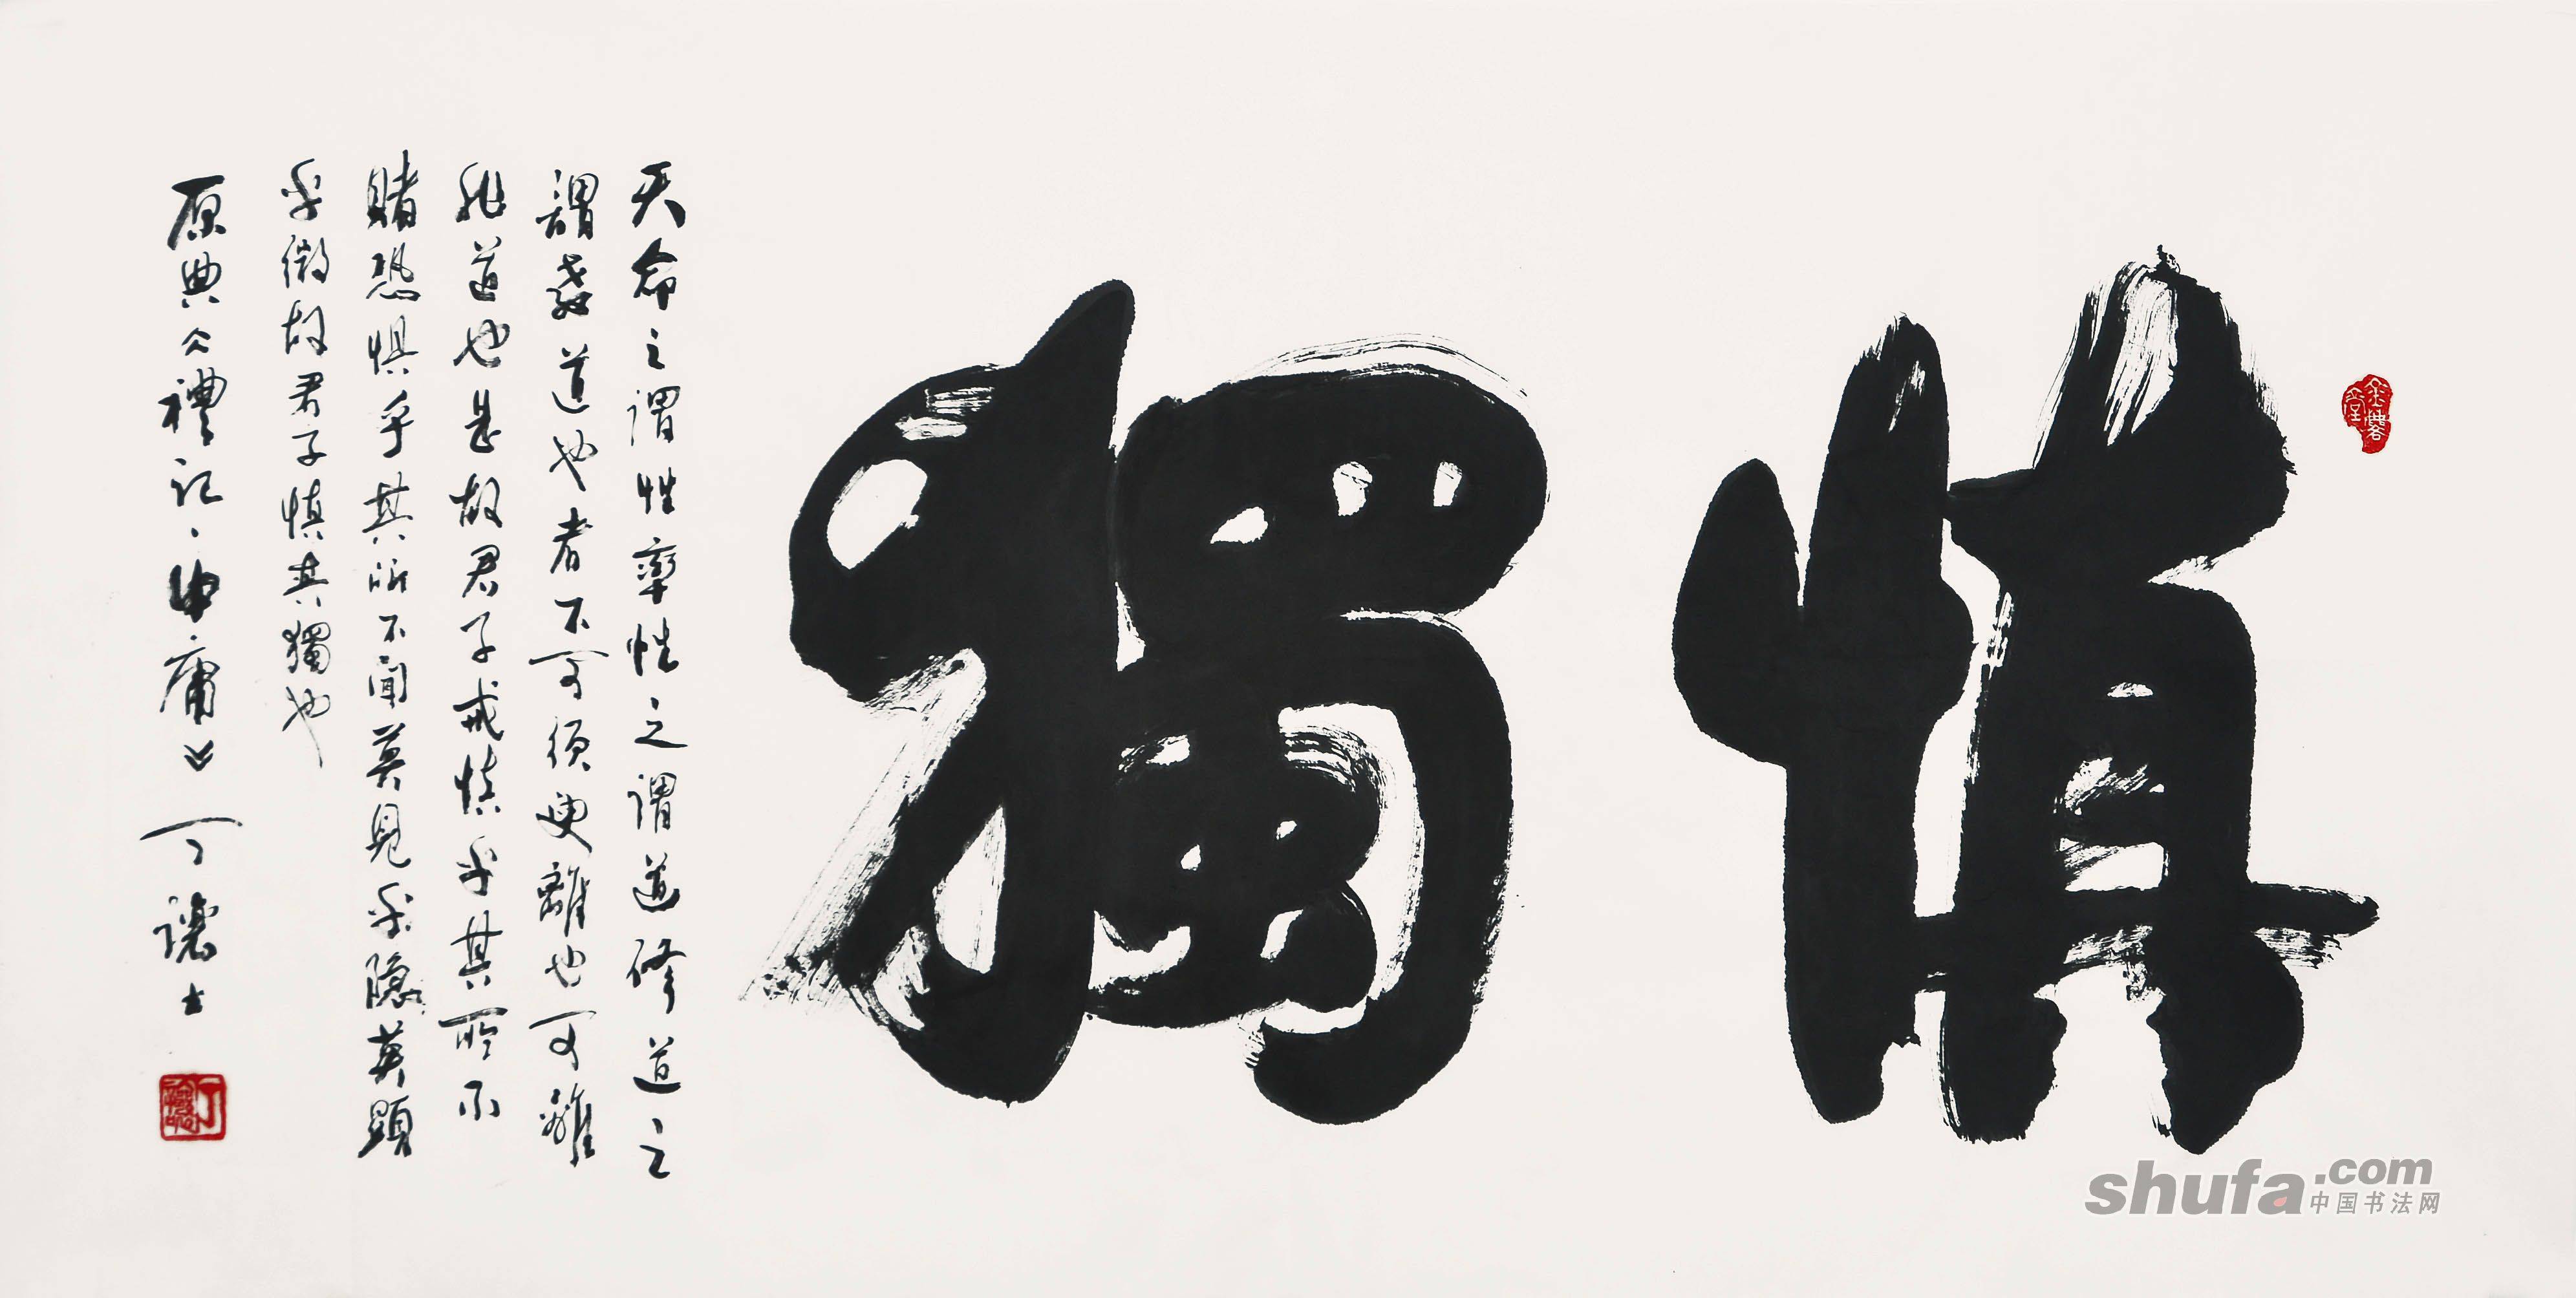 慎獨
天命之謂性率性之謂道修道之
謂教道也者不可須臾離也可離
非道也是故君子戒慎乎其所不
睹恐惧乎其所不聞莫見乎隐莫顯
乎微故君子慎其獨也
原典《禮記·中庸》丁
shufa.com
中国书法网